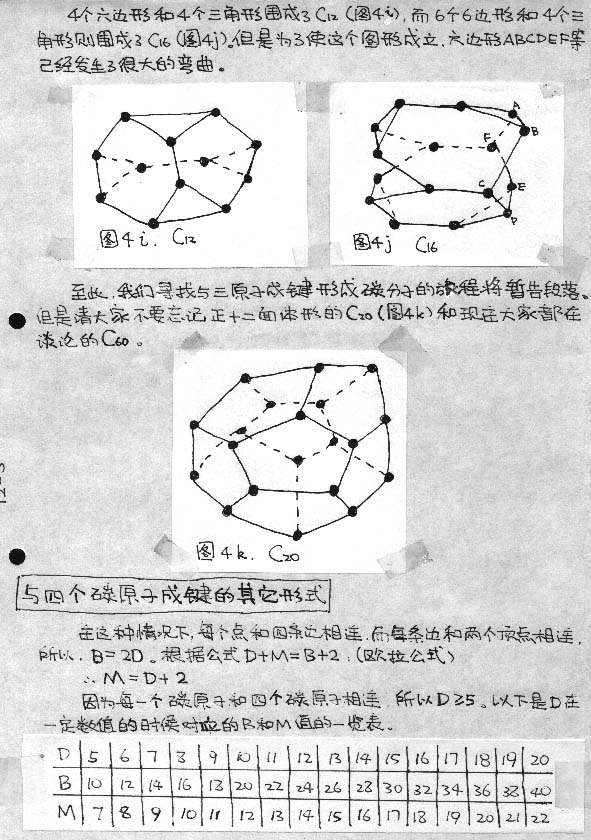 4个六边形和4个三角形围成了C12(图4i),而6个6边形和4个三
角形则围成了C16(图4j)。但是为了使这个图形成立,六边形ABCDEF等
已经发生了很大的弯曲。
A
B
F
C
E
D
图4i. C12
图4j C16
至此,我们寻找与三原子成键形成碳分子的旅程将暂告段落。
但是请大家不要忘记正十二面体形的C20(图4k)和现在大家都在
谈论的C60。
图4k. C20
与四个碳原子成键的其它形式
在这种情况下,每个点和四条边相连,而每条边和两个顶点相连,
所以,B=2D。根据公式D+M=B+2:(欧拉公式)
∴M=D+2
因为每一个碳原子和四个碳原子相连,所以D≥5。以下是D在
一定数值的时候对应的B和M值的一览表。
D 5 6 7 8 9 10 11 12 13 14 15 16 17 18 19 20
B 10 12 14 16 18 20 22 24 26 28 30 32 34 36 38 40
M 7 8 9 10 11 12 13 14 15 16 17 18 19 20 21 22